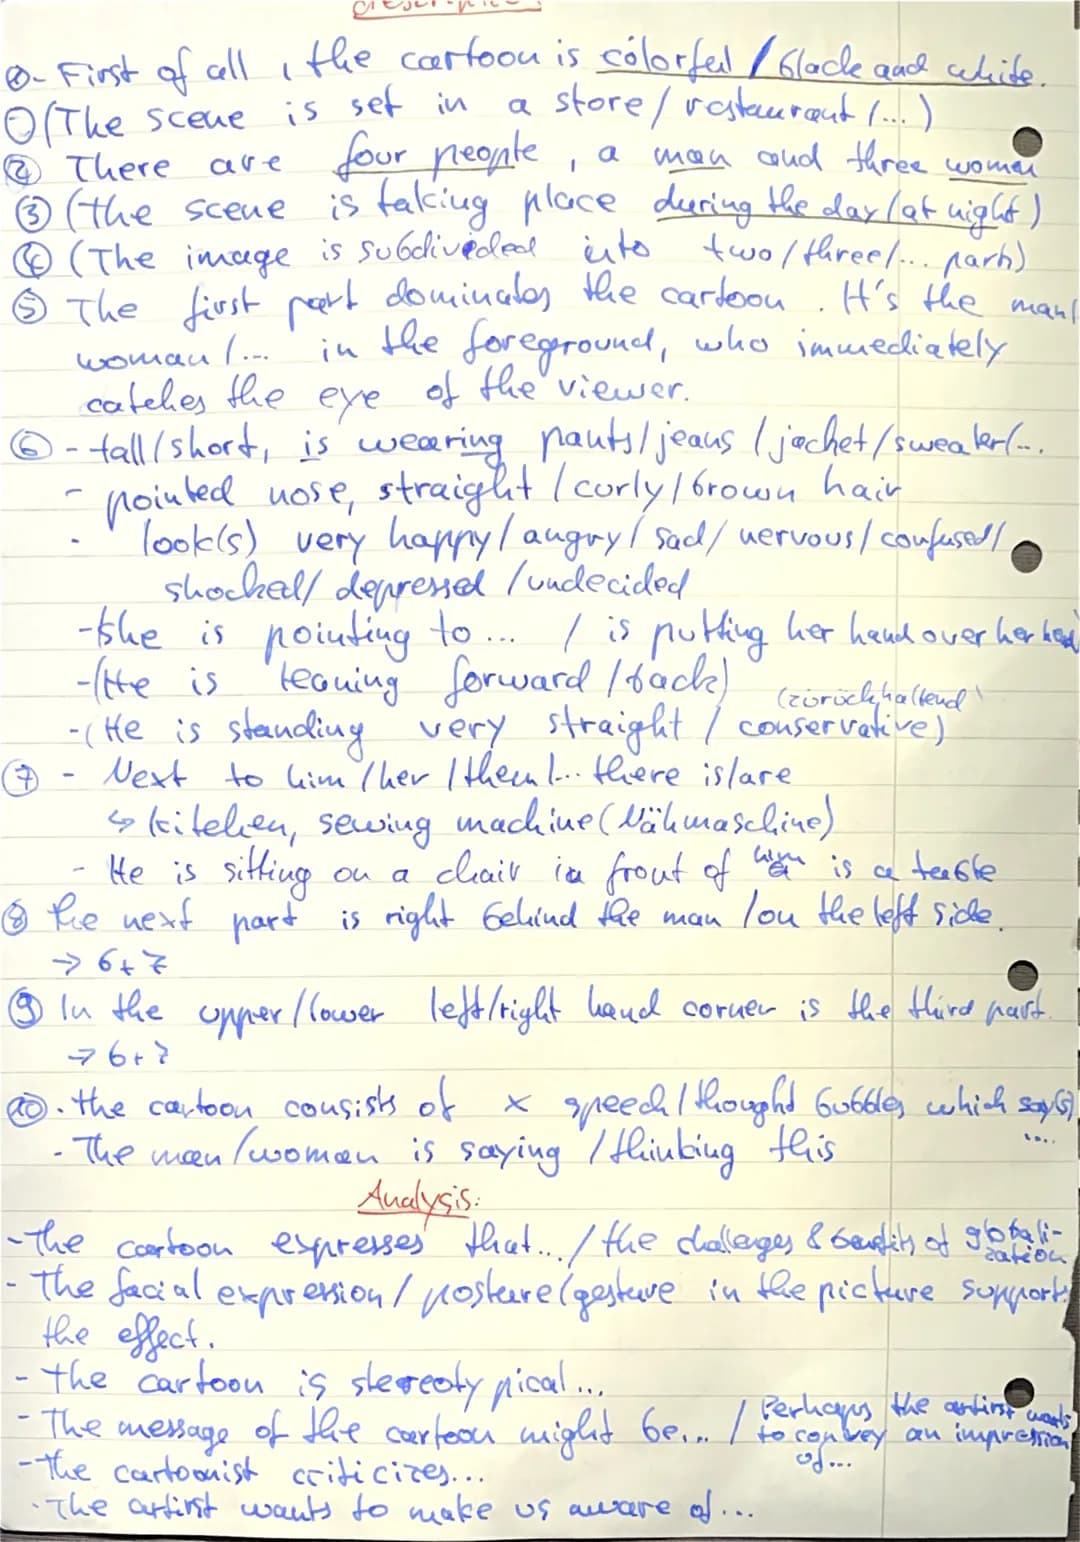 Description:
⓪- First of all, the cartoon is colorful / black and white.
① (The scene is set in a store / restaurant /...)
② There are four people, a man and three women
③ (the scene is taking place during the day / at night)
④ (The image is subdivided into two / three /... parts)
⑤ The first part dominates the cartoon. It's the man/
woman /... in the foreground, who immediately
catches the eye of the viewer.
⑥ - tall / short, is wearing pants / jeans / jacket / sweater /...
- pointed nose, straight / curly / brown hair
- look(s) very happy / angry / sad / nervous / confused /
shocked / depressed / undecided
- She is pointing to ... / is putting her hand over her head
- (He is leaning forward / back)
(zurückhaltend)
- (He is standing very straight / conservative)
⑦ - Next to him / her / them /... there is/are
↳ kitchen, sewing machine (Nähmaschine)
- He is sitting on a chair in front of him is a table
⑧ the next part is right behind the man / on the left side.
→ 6 + 7
⑨ In the upper / lower left / right hand corner is the third part.
→ 6 + 7
⑩ - the cartoon consists of x speech / thought bubbles, which say(s)
....
- The man / woman is saying / thinking this
Analysis:
- The cartoon expresses that... / the challenges & benefits of globali-
zation
- The facial expression / posture / gesture in the picture supports
the effect.
- the cartoon is stereotypical ...
- The message of the cartoon might be... / Perhaps the artirst wants
to convey an impression
of...
- the cartoonist criticizes...
- The artirst wants to make us aware of ...